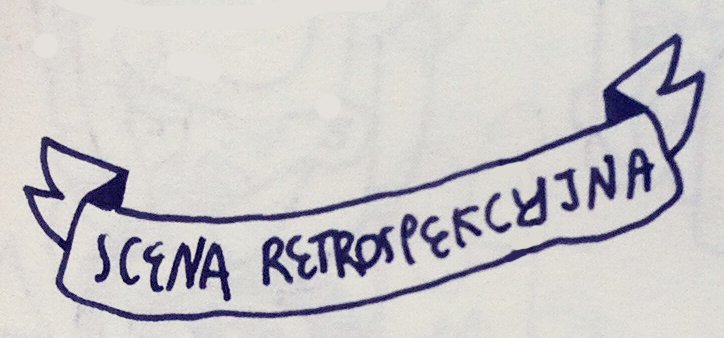 SCENA RETROSPEKCYJNA